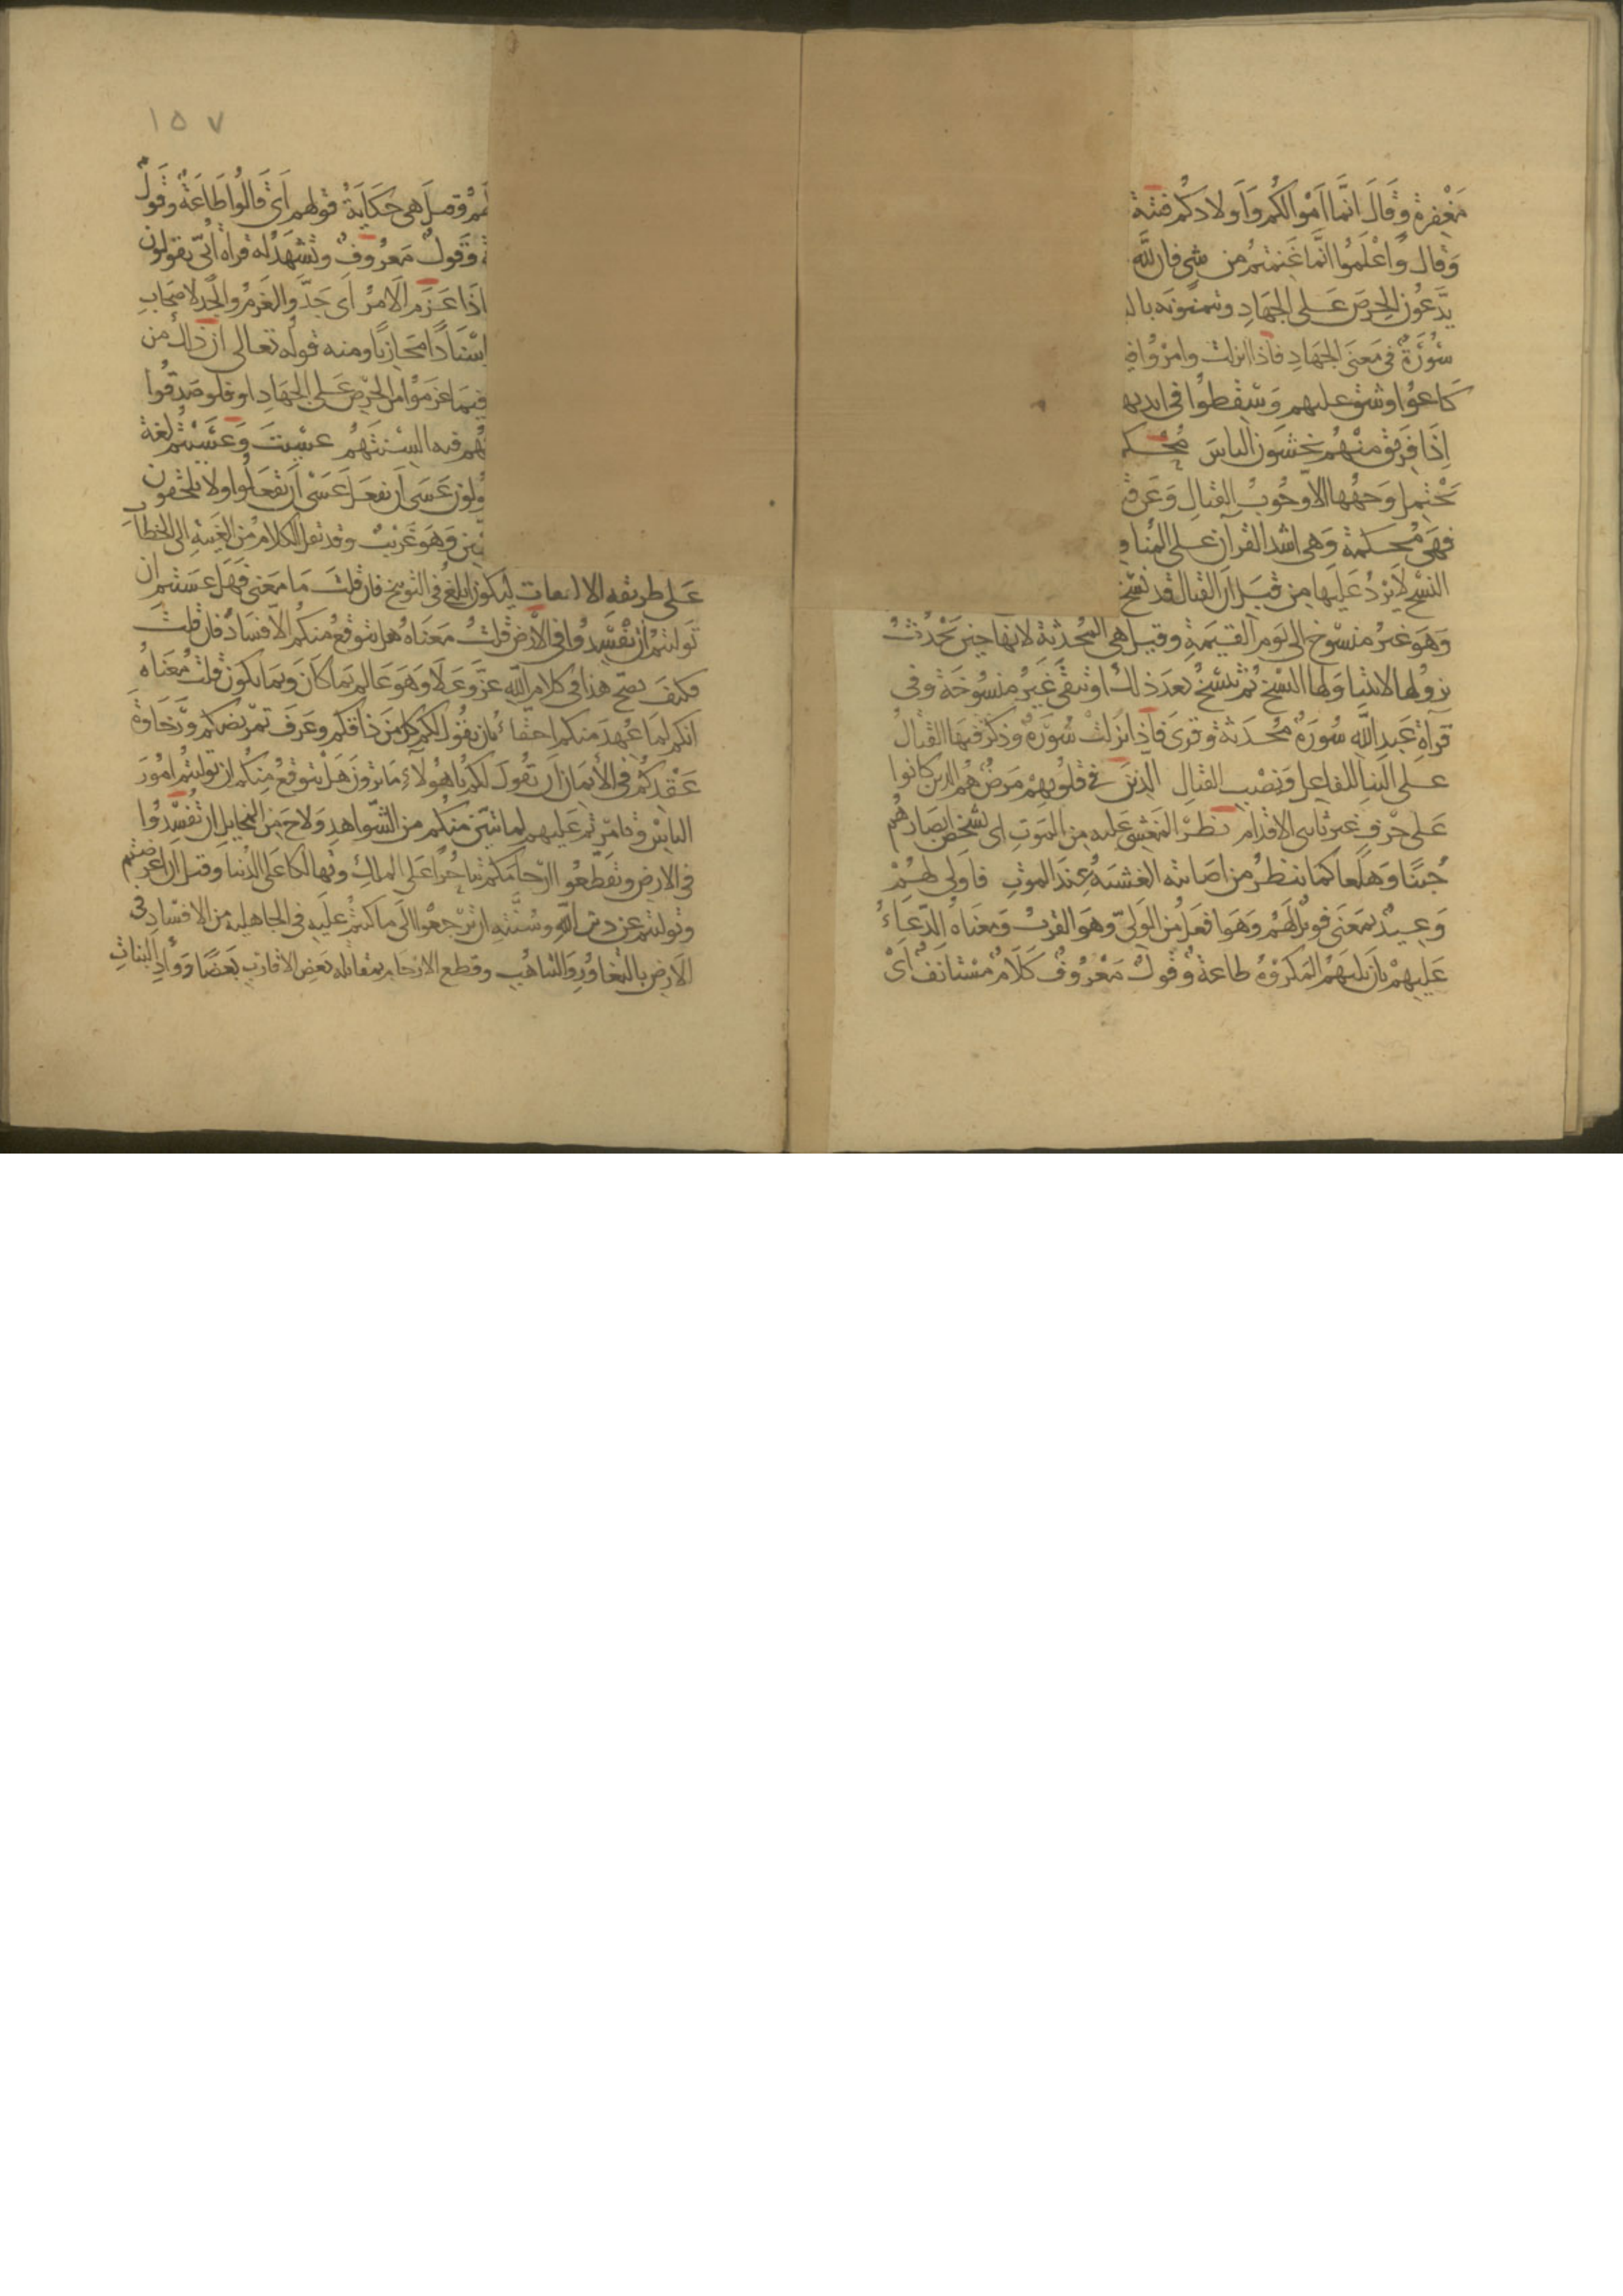 مَغْفِرة وقَالَ انَّما اَمْوالكُم وَاَولادكُم فتنة
وَقال وَاعْلَمُوا انَّما غَنمتم من شي فان لله
يَدَّعُون الحِرصَ عَلى الجهَادِ ويتمنونه بال
سُورَةٌ فى مَعنَى الجهَادِ فاذا انزلت وامرُوا في
كَاعوُا وشق عليهم وَسقطوا فى ايديهـ
اِذَا فَرِيق منهُم يخشون الناسَ مُحكـ
تَحْتِمِل وَجهًا الاّ وجُوبُ القتال وَعَن ق
فهى مُحكمة وَهى اشد القرآن على المنا و
النسْخ لا يَرِدُ عَليها مِن قِبَل ان القتال قد نَسَخ
وَهوَ غيرُ منسُوخ الى يَوم القيمَةِ وقيل هى المُحدثة لانها حِين تَحْدُثُ
نزولها لا يتناولها النسْخ ثم تنسَخُ بعدَ ذلك او تبقى غَيرُ منسُوخَة وفى
قرآة عَبدِ الله سُورَة مُحدَثة وقرى فَاذا نَزلتْ سُورَة وذكَر فيهَا القتالُ
على البناء للفاعل وَنصْب القتالِ الذينَ فى قلُوبِهِمْ مَرض هُم الذين كانوا
عَلى حَرْفٍ غير ثابتى الاقدام نظرَ المَغشى عَليه من المَوتِ اى تشخص ابصَارهُم
جُبنًا وَهلَعا كما ينظرُ من اصَابته الغشيَة عندَ الموتِ فاَولى لهُمْ
وَعيدٌ بمَعنى فويْلٌ لهُم وَهوَ افعَل من الوَلىِّ وَهوَ القربُ وَمعنَاه الدعَاءُ
عَليهمْ بان يليَهمُ المكرُوهُ طاعة وقولٌ مَعْرُوفٌ كلَامٌ مسْتانَفٌ اَىْ
١٥٧
لَهُمْ وقيلَ هى حكَايَة قولهم اَى قالُوا طَاعَةٌ وَقولٌ
ة وَقولٌ مَعْرُوفٌ وتشهَدُ له قرآة اُبىّ يقولون
اذَا عَزَمَ الاَمْرُ اَى جَدَّ والعَزمُ والجد لاصحَابِ
اسْنَادًا مجَازيًا ومنه قوله تعالى ان ذلك من
فيمَا زعَمُوا من الحِرْص عَلى الجهَادِ او فلو صَدقوا
هُم فيه السنتَهُم عسَيتَ وَعَسَيْتُم لغة
ولون عَسَى ان تفعَل عَسَى ان تفعَلوا ولا يلحقون
ـين وَهوَ غَريبٌ وقد نقل الكلام من الغيبَةِ الى الخطاب
عَلى طريقه الالتفات ليكون ابلغ فى التوبيخ فان قلتَ مَا مَعنى فهَل عسَيتم ان
تَوليتمُ ان تُفسِدُوا فى الاَرض قلتُ مَعنَاه هل يتوقعُ منكم الافسَادُ فان قلتَ
فكيفَ يصحّ هذا فى كلام اللهِ عزَّ وَعَلا وَهوَ عَالم بمَا كانَ وَبمَا يكون قلتُ مَعنَاهُ
انكم لما عُهِدَ منكم احقّاءُ بان يقول لكم كل مَن ذاقكم وعَرَف تمرْيضكم وَرَخاوَة
عَقدكُم فى الاِيمَان اَن تقُولَ لكم يا هؤلاءِ مَا ترَونَ هَل يتوقعُ منِكُم ان توليتُم امُورَ
الناسِ وَتامرتم عَليهم لما تبَيّنَ منكم من الشّواهدِ وَلاحَ مِن المخايِل ان تُفسِدُوا
فى الارضِ وتقطعُوا ارْحامَكم تناحرًا عَلى المُلكِ وتهالكا عَلى الدُنيا وقيل ان اعرَضتم
وتوليتم عَن دين اللهِ وسُنَّتهِ ان ترْجعُوا الَى ما كنتُم عَليهِ فى الجاهلية من الافسَادِ فى
الاَرض بالتَغاوُرِ وَالتناهُب وقطع الارحَام بمقاتلة بَعْضِ الاقارب بَعضًا وَوأدِ البَناتِ